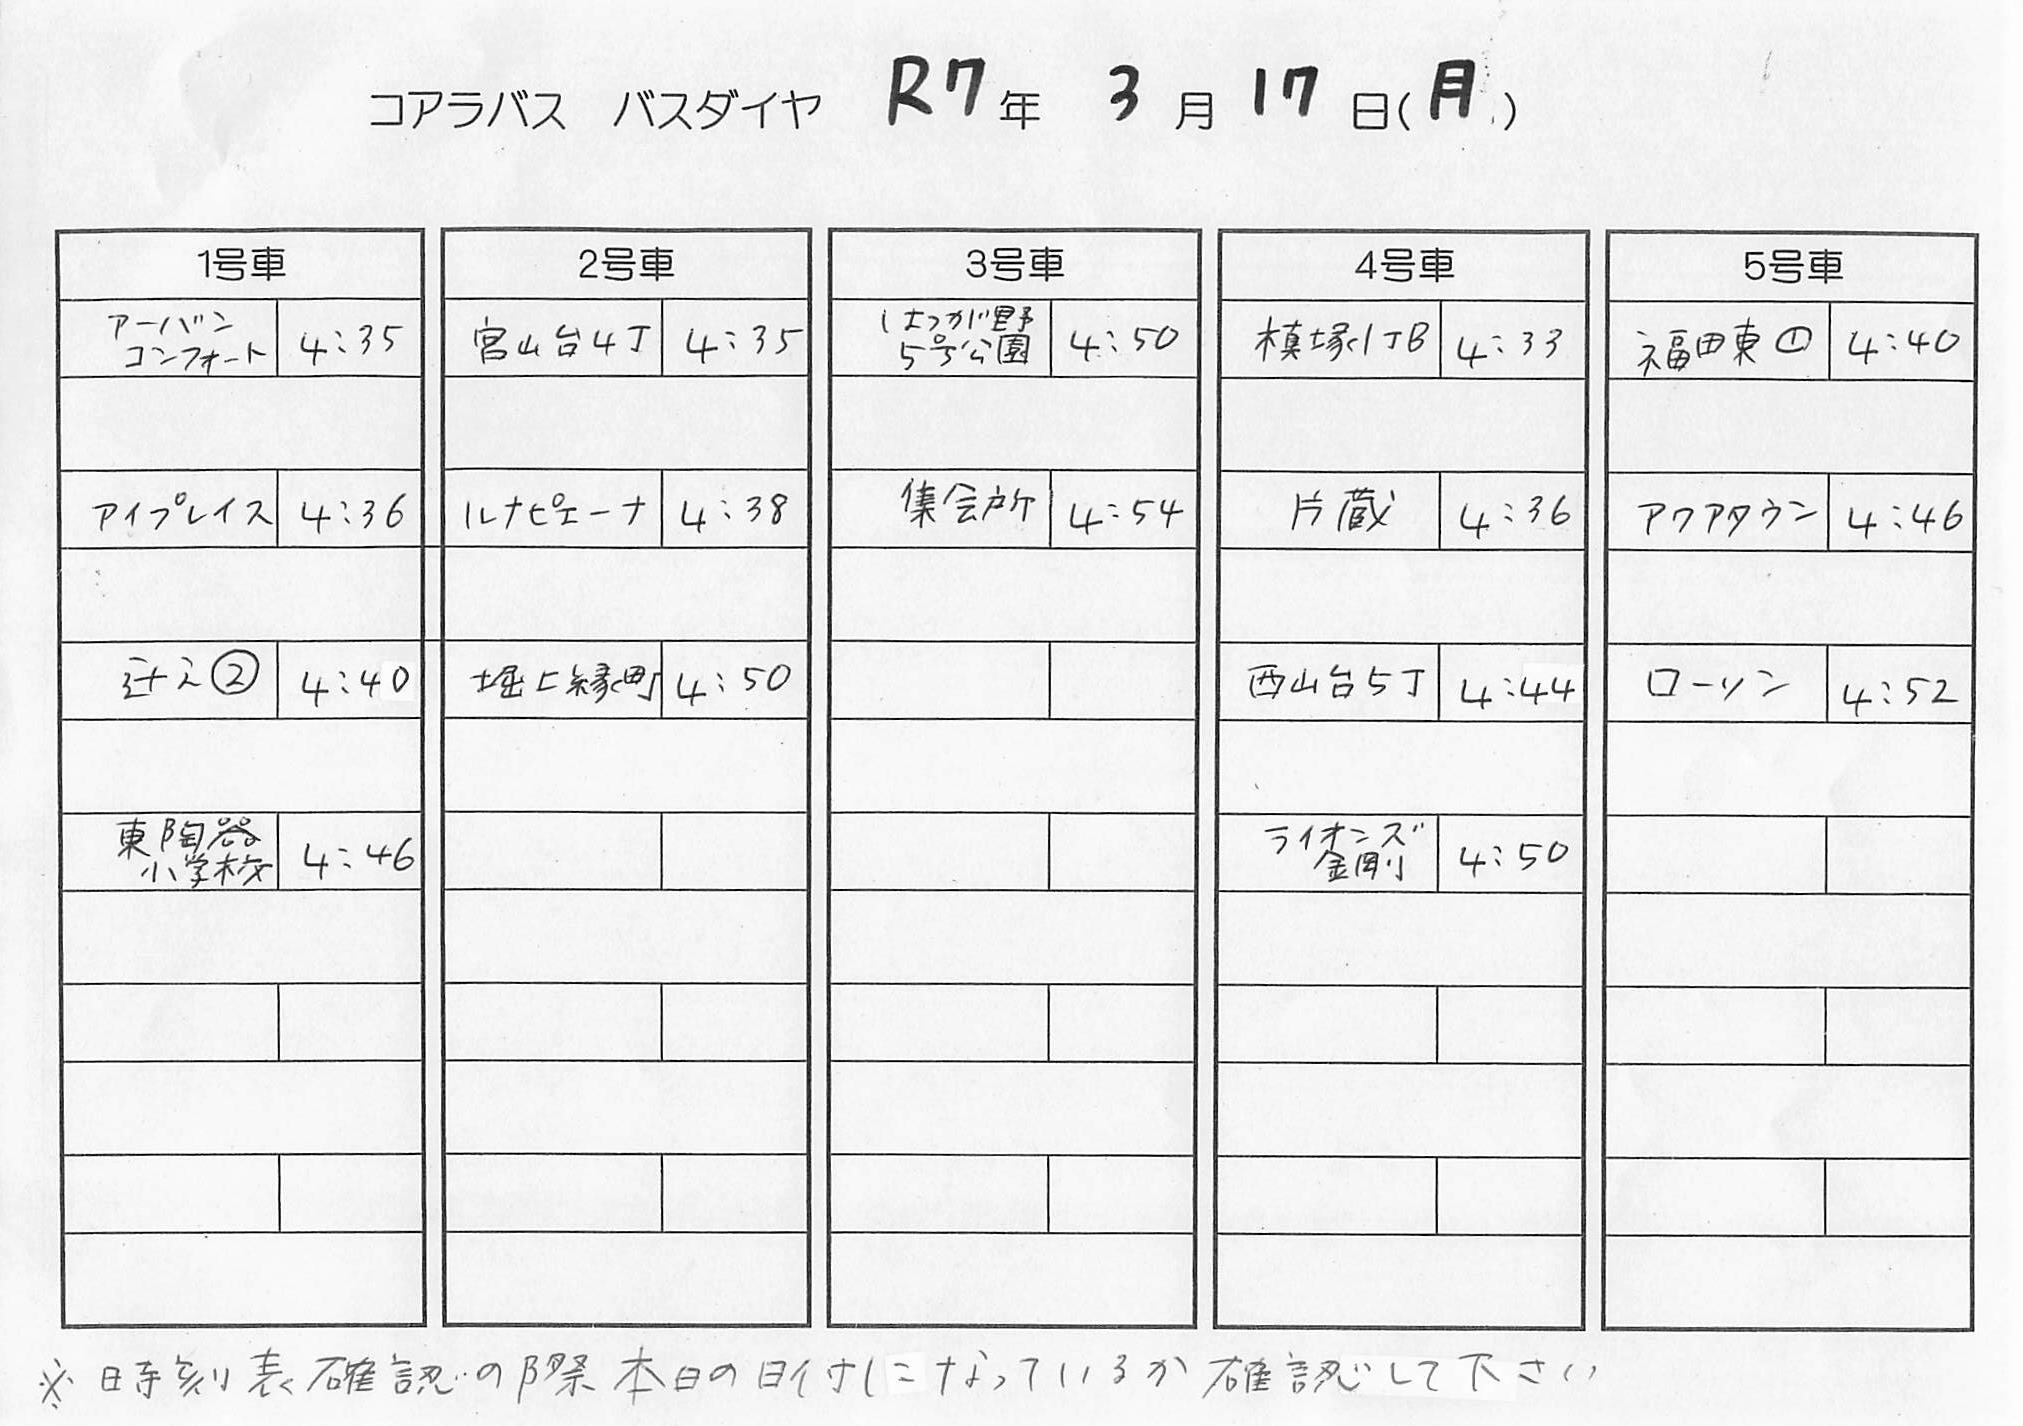 コアラバス　バスダイヤ　R7年　3月17日(月)
1号車　2号車　3号車　4号車　5号車
アーバン
コンフォート　4:35
宮山台4丁　4:35
はつが野
5号公園　4:50
槙塚1丁B　4:33
福田東①　4:40
アイプレイス　4:36
ルナピエーナ　4:38
集会所　4:54
片蔵　4:36
アクアタウン　4:46
辻え②　4:40
堀上縁町　4:50
西山台5丁　4:44
ローソン　4:52
東陶器
小学校　4:46
ライオンズ
金剛　4:50
※時刻表確認の際本日の日付けになっているか確認して下さい